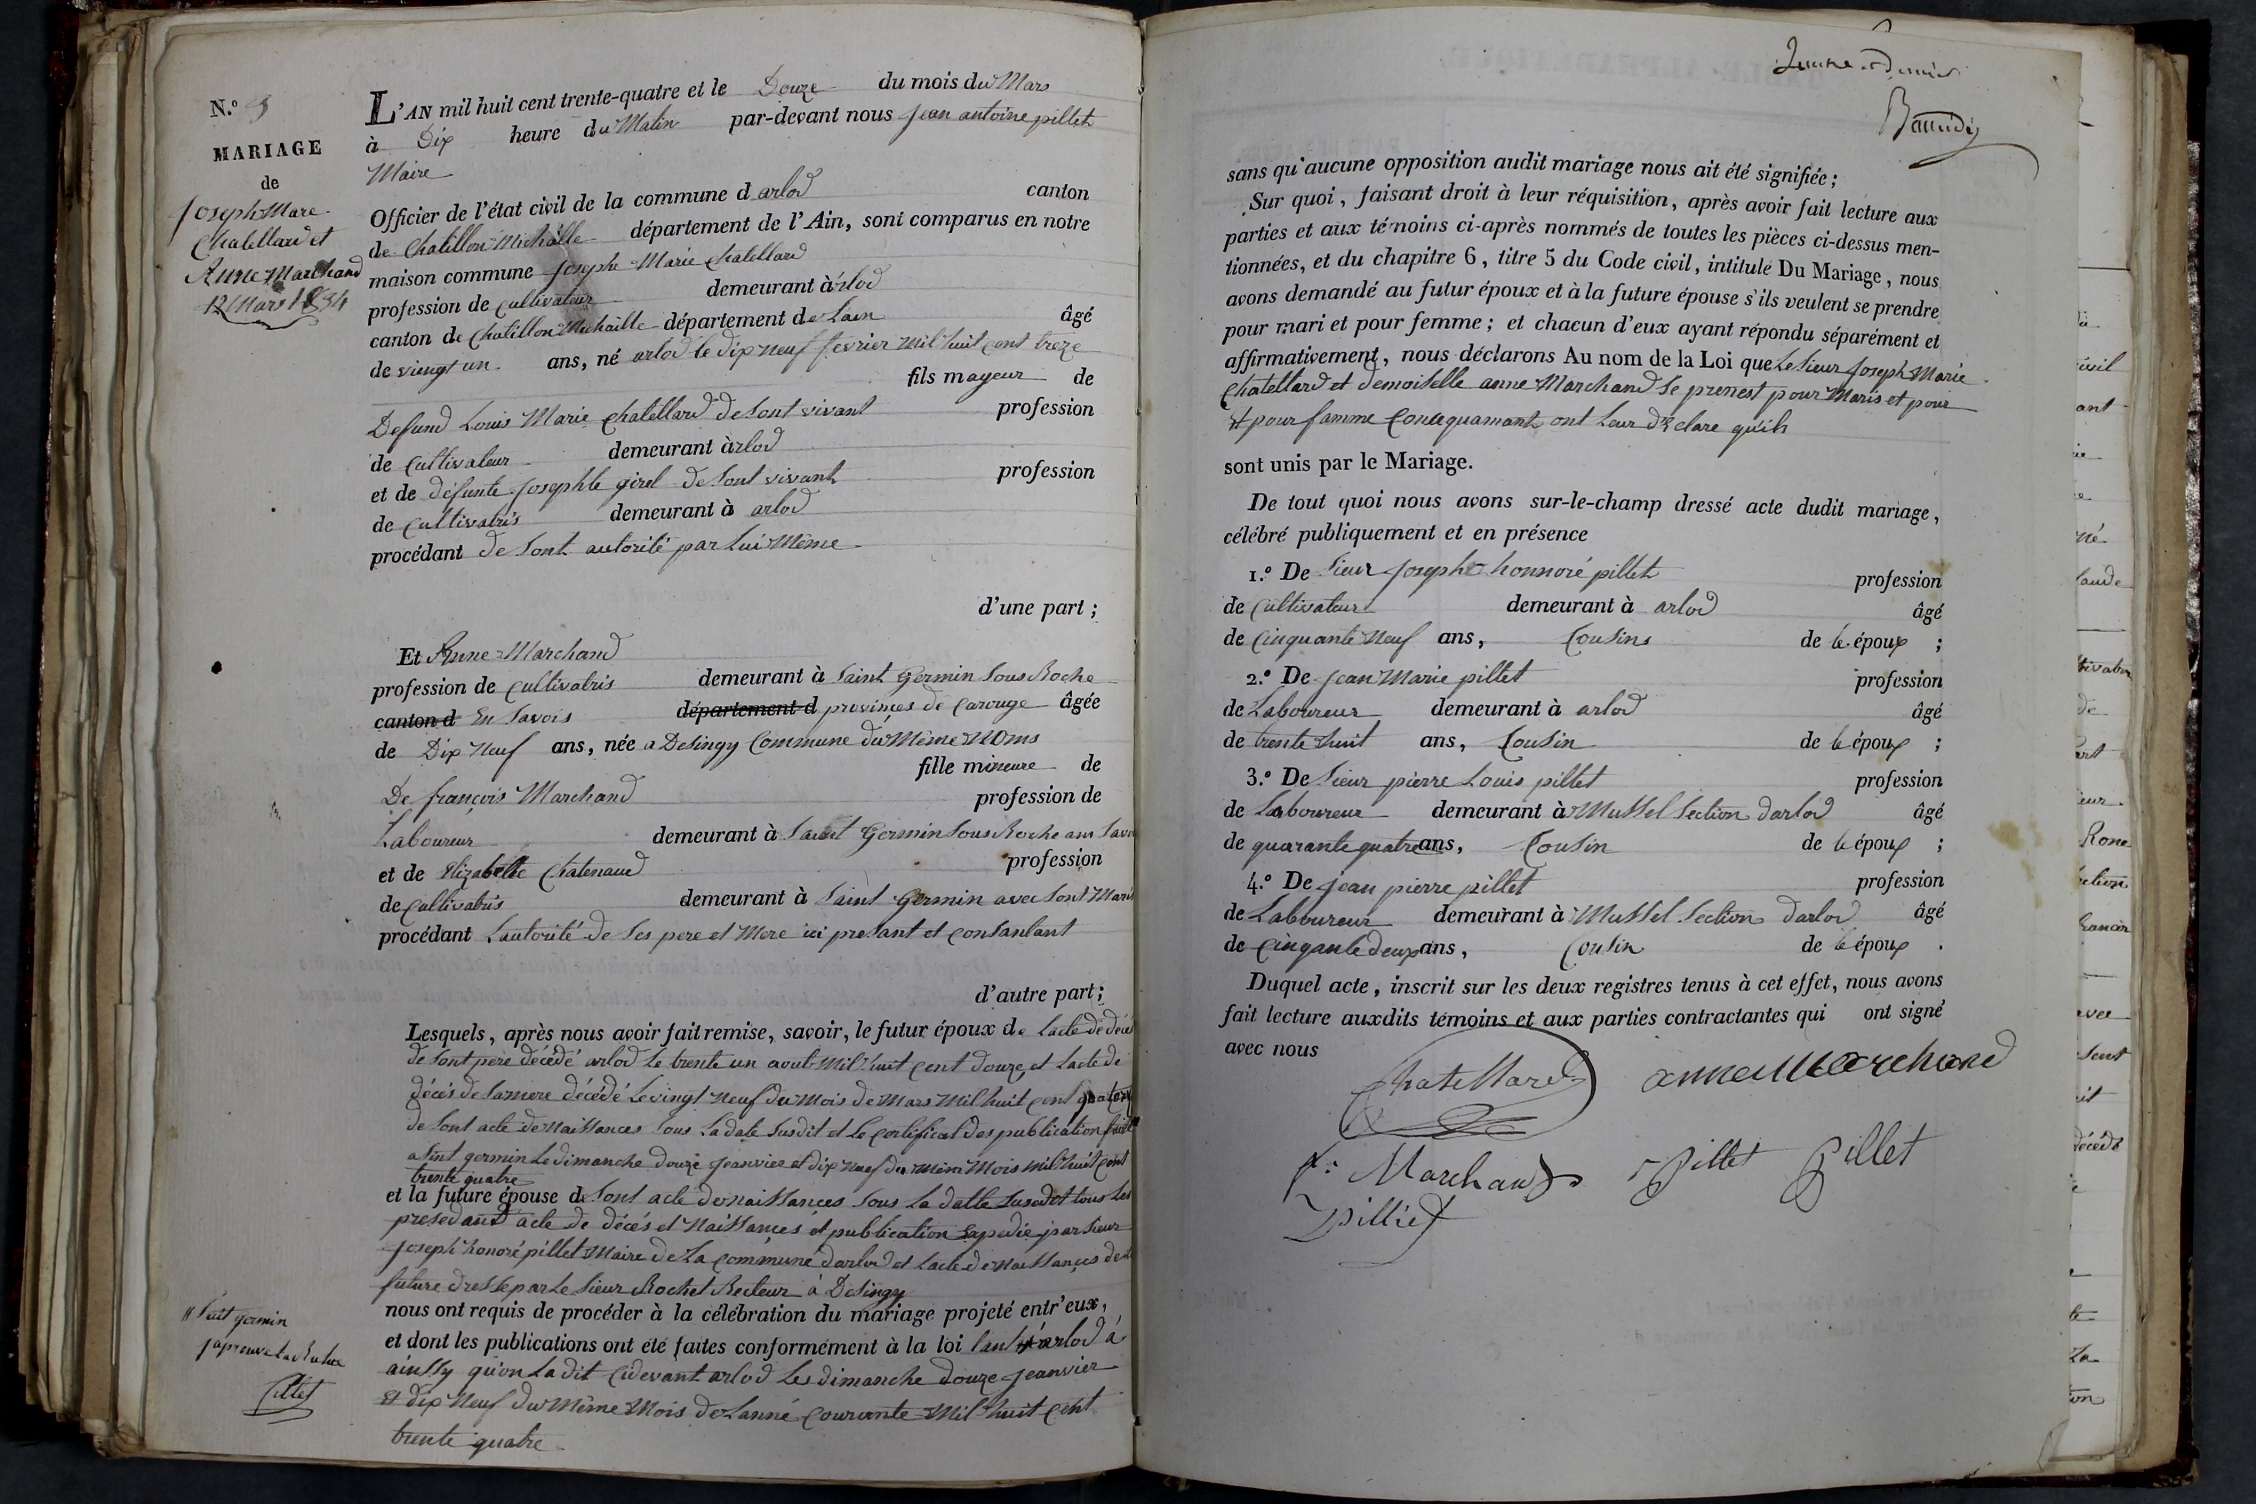 N.º 3
MARIAGE
de
Joseph Marie
Chatellard et
Anne Marchand
12 Mars 1834
L'AN mil huit cent trente-quatre et le Douze du mois du Mars
à Dix heure du Matin par-devant nous Jean antoine pillet
Maire
Officier de l'état civil de la commune d arlod canton
de Chatillon Michaille département de l'Ain, sont comparus en notre
maison commune Joseph Marie Chatellard
profession de cultivateur demeurant à arlod
canton de Chatillon Michaille département de Lain âgé
de viengt un ans, né arlod le dix neuf fevrier mil huit cent treze
fils mayeur de
Defund Louis Marie Chatellard de sont vivant profession
de cultivateur demeurant à arlod
et de défunte Josephte girel de sont vivant profession
de cultivatris demeurant à arlod
procédant de sont autorité par lui Même
d'une part ;
Et Anne Marchand
profession de cultivatris demeurant à Saint Germin Sous Roche
canton d En Savois département d provinces de Carouge âgée
de Dix Neuf ans, née a Desingy Commune du Même Noms
fille mineure de
De françois Marchand profession de
Laboureur demeurant à Saint Germin Sous Roche ans Savoi
et de Elizabette Chatenaud profession
de cultivatris demeurant à Saint Germin avec sont Maris
procédant Lautorité de ses pere et Mere ici presant et consantant
d'autre part ;
Lesquels, après nous avoir fait remise, savoir, le futur époux de Lacte de décé
de sont pere décédé arlod le trente un aout mil huit cent douze et Lacte de
décés de samere décédé Le vingt neuf du mois de Mars mil huit cent quatorze
de sont acte de naissances sous La date susdit et le certificat des publication faite
a sint germin Le dimanche douze jeanvier et dix neuf du même Mois mil huit cent
trente quatre
et la future épouse de sont acte de naissances sous La datte susdit tous les
presedant acte de décés et Naissances et publication Expedie par sieur
Joseph honoré pillet Maire de La commune darlod et Lacte de naissances de la
future dressé par Le sieur Rochet Recteur à Desingy
nous ont requis de procéder à la célébration du mariage projeté entr'eux,
et dont les publications ont été faites conformément à la loi tant arlod à
ainssy qu'on La dit cidevant arlod Les dimanche douze jeanvier
Et dix Neuf du Même Mois de Lanné courante Mil huit cent
trente quatre
// Saint germin
Pillet
sans qu'aucune opposition audit mariage nous ait été signifiée ;
Sur quoi, faisant droit à leur réquisition, après avoir fait lecture aux
parties et aux témoins ci-après nommés de toutes les pièces ci-dessus men-
tionnées, et du chapitre 6, titre 5 du Code civil, intitulé Du Mariage, nous
avons demandé au futur époux et à la future épouse s'ils veulent se prendre
pour mari et pour femme ; et chacun d'eux ayant répondu séparément et
affirmativement, nous déclarons Au nom de la Loi que Le sieur Joseph Marie
Chatellard et demoiselle anne Marchand se prenest pour Maris et pour
et pour famme Concequamant ont Leur déclare qu'ils
sont unis par le Mariage.
De tout quoi nous avons sur-le-champ dressé acte dudit mariage,
célébré publiquement et en présence
1.º De Sieur Joseph honnoré pillet profession
de cultivateur demeurant à arlod âgé
de Cinquante Neuf ans, Cousins de le époux ;
2.º De Jean Marie pillet profession
de Laboureur demeurant à arlod âgé
de trente huit ans, Cousin de le époux ;
3.º De Sieur pierre Louis pillet profession
de Laboureur demeurant à Mussel Section darlod âgé
de quarante quatre ans, Cousin de le époux ;
4.º De Jean pierre pillet profession
de Laboureur demeurant à Mussel Section darlod âgé
de Cinqante deux ans, Cousin de le époux .
Duquel acte, inscrit sur les deux registres tenus à cet effet, nous avons
fait lecture auxdits témoins et aux parties contractantes qui ont signé
avec nous
Chatellard anne Marchand
f: Marchand Pillet Pillet
pilliet